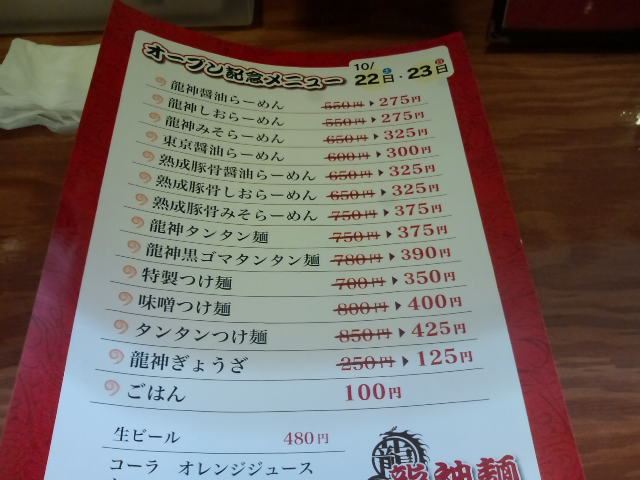 オープン記念メニュー 10/22土日・23日日
龍神醤油らーめん 550円▶275円
龍神しおらーめん 550円▶275円
龍神みそらーめん 650円▶325円
東京醤油らーめん 600円▶300円
熟成豚骨醤油らーめん 650円▶325円
熟成豚骨しおらーめん 650円▶325円
熟成豚骨みそらーめん 750円▶375円
龍神タンタン麺 750円▶375円
龍神黒ゴマタンタン麺 780円▶390円
特製つけ麺 700円▶350円
味噌つけ麺 800円▶400円
タンタンつけ麺 850円▶425円
龍神ぎょうざ 250円▶125円
ごはん 100円
生ビール 480円
コーラ オレンジジュース
龍神麺